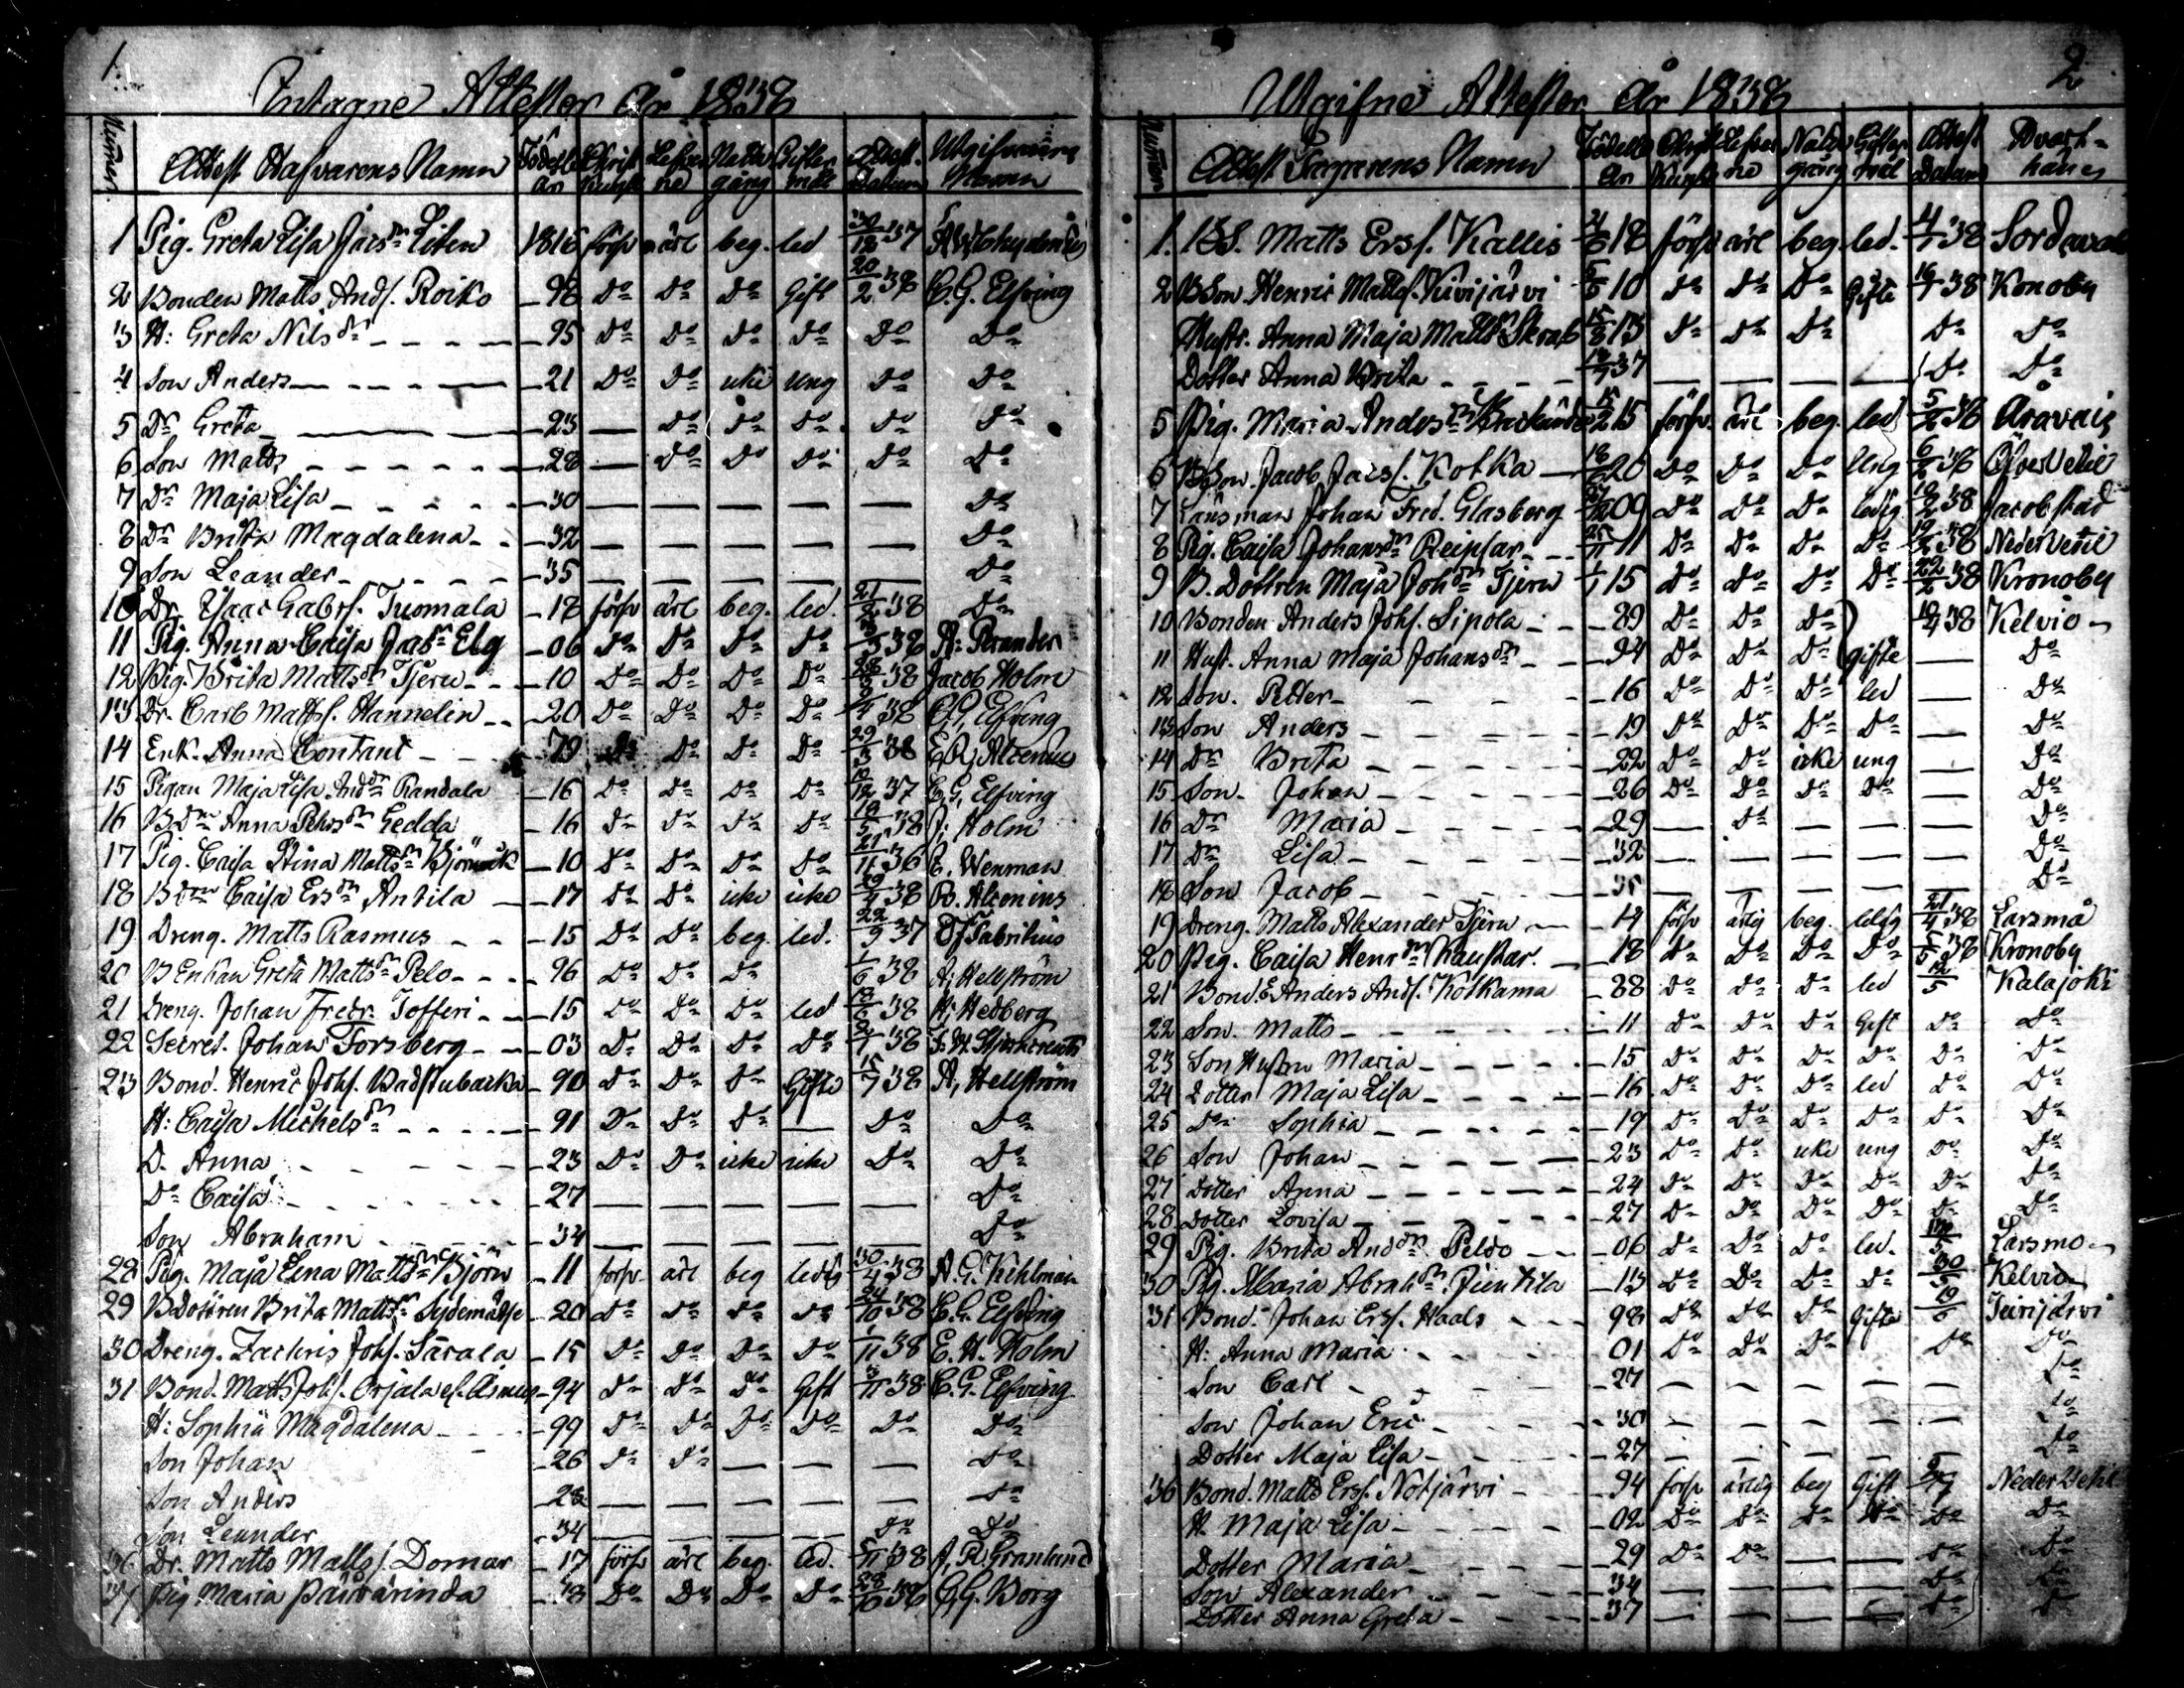 1.
Intagne Attester År 1838
Numer Attest Hafvarens Namn Födelse år Christ kunsk Lefver ne Nattv gång Gifter mål Attest Datum Utgifvarens Namn
1 Pig. Greta Lisa Jacsdr Liten 1816 försv ärl beg. led 37
2 Bonden Matts Ands. Roiko 98 Do Do Do Gift 20/2 38 C.G. Elfving
3 H: Greta Nilsdr 95 Do Do Do Do Do Do
4 Son Anders 21 Do Do icke ung Do Do
5 Dr Greta 23 Do Do Do Do Do
6 Son Matts 28 Do Do Do Do Do
7 Dr Maja Lisa 30 Do
8 Dr Brita Magdalena 32 Do
9 Son Leander 35 Do
10 Dr. Isaac Gabrs. Tuomala 18 försv ärl beg. led. 21/2 38 Do
11 Pig. Anna Caisa Jacsdr Elg 06 Do Do Do Do 38 A: Perander
12 Pig. Brita Mattsdr Tjeru 10 Do Do Do Do 38 Jacob Holm
13 Dr. Carl Matts. Hannelin 20 Do Do Do Do 38 C.G. Elfving
14 Enk. Anna Contant 79 Do Do Do Do 29/3 38 Alcenius
15 Pigan Maja Lisa Anddr Randala 16 Do Do Do Do 37 C.G. Elfving
16 Bdr Anna Pehrsdr Gedda 16 Do Do Do Do 38 J: Holm
17 Pig. Caisa Stina Mattsdr Björnvik 10 Do Do Do Do 21/11 36 E. Wenman
18 Bdr Caisa Ersdr Antila 17 Do Do icke icke 29/4 38 Alcenius
19 Dreng. Matts Rasmus 15 Do Do beg. led. 22/9 37
20 B Enkan Greta Mattsdr Pelo 96 Do Do Do 1/6 38 A; Hellström
21 Dreng. Johan Fredr. Tofferi 15 Do Do Do led 38 H; Hedberg
22 Secret. Johan Forsberg 03 Do Do Do Do 38
23 Bond. Henric Johs. Badstubacka 90 Do Do Do Gifte 15/7 38 A, Hellström
H: Caisa Michelsdr 91 Do Do Do Do Do
D. Anna 23 Do Do icke icke Do Do
Do Caisa 27 Do
Son Abraham 34 Do
28 Pig. Maja Lena Mattsdr Björn 11 försv ärl beg ledig 30/4 38 A.G. Kihlman
29 B Dottren Brita Mattsdr 20 Do Do Do Do 24/10 38 C.G. Elfving
30 Dreng. Zachris Johs. Särala 15 Do Do Do Do 1/11 38 E. H. Holm
31 Bond. Matts Johs. Orjala el. Asmus 94 Do Do Do Gift 3/11 38 C.G. Elfving
H: Sophia Magdalena 99 Do Do Do Do Do Do
Son Johan 26 Do Do Do
Son Anders 28 Do
Son Leander 34 Do Do
36 Dr. Matts Matts. Domar 17 försv ärl beg. led. 5/11 38 J. R. Granlund
37 Pig Maria Päivärinda 18 Do Do Do Do 28/10 38 G.G. Borg
2
Utgifne Attester År 1838
Numer Attest Tagarens Namn Födelse år Christ Kunsk Lefver ne Nattv gång Gifter mål Attest Datum Hvart hän
1. Matts Ers. Kallis 18 försv ärl beg. led. 4/1 38 Sordavala
2 B Son Henric Matts. Kivijärvi 10 Do Do Do Gifte 16/1 38 Kronoby
Hustr. Anna Maja Mattsdr Skrab 13 Do Do Do Do Do
Dotter Anna Brita 37 Do Do
5 Pig. Maria Andersdr 15 försv ärl beg. led 5/2 38 Oravais
6 B. Son Jacob Jacs. Kotka 20 Do Do Do Ung 6/2 38 Öfver Vetil
7 Länsman Johan Fred. Glasberg 09 Do Do Do ledig 38 Jacobstad
8 Pig. Caisa Johansdr Reipsar 25/11 11 Do Do Do Do 19/2 38 Neder Vetil
9 B. Dottren Maja Johdr Tjeru 15 Do Do Do Do 22/2 38 Kronoby
10 Bonden Anders Johs. Sipola 89 Do Do Do 38 Kelvio
11 Hust. Anna Maja Johansdr 94 Do Do Do gifte Do
12 Son. Petter 16 Do Do Do led Do
13 Son Anders 19 Do Do Do Do Do
14 Dr Brita 22 Do Do icke ung Do
15 Son. Johan 26 Do Do Do Do Do
16 Dr Maria 29 Do Do
17 Dr Lisa 32 Do
18 Son Jacob 35 Do
19 Dreng. Matts Alexander Tjeru 19 försv ärlig beg. ledig 21/4 38 Larsmå
20 Pig. Caisa Henrdr Kauppar. 18 Do Do Do Do 5/5 38 Kronoby
21 Bond. Anders Ands. Kotkama 88 Do Do Do led 12/5 Kalajoki
22 Son. Matts 11 Do Do Do Gift Do Do
23 Son Hustru Maria 15 Do Do Do Do Do Do
24 Dotter Maja Lisa 16 Do Do Do led Do Do
25 Do Sophia 19 Do Do Do Do Do Do
26 Son Johan 23 Do Do icke ung Do Do
27 Dotter Anna 24 Do Do Do Do Do Do
28 Dotter Lovisa 27 Do Do Do Do Do Do
29 Pig. Brita Anddr Peldo 06 Do Do Do led. Larsmo
30 Pig. Maria Abrahdr Jientila 13 Do Do Do Do 30/5 Kelvio
31 Bond. Johan Ers. Haals 98 Do Do Do Gifte 19/6 Peirijärvi
H: Anna Maria 01 Do Do Do Do Do
Son Carl 27 Do
Son Johan Eric 30 Do
Dotter Maja Lisa 27 Do
36 Bond. Matts Ers. Notjärvi 94 försv ärlig beg Gift Neder Vetil
H. Maja Lisa 02 Do Do Do Do Do Do
Dotter Maria 29 Do Do Do Do
Son Alexander 34 Do Do
Dotter Anna Greta 37 Do Do